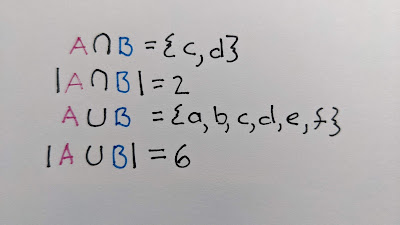 A∩B = {c,d}
|A∩B| = 2
A∪B = {a,b,c,d,e,f}
|A∪B| = 6